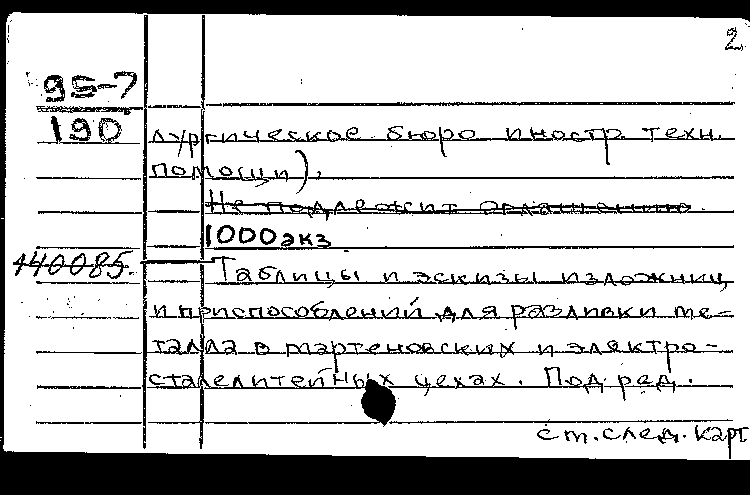 2
95-7
190
лургическое бюро иностр. техн.
помощи).
Не подлежит оглашению.
1000 экз.
140085.
Таблицы и эскизы изложниц
и приспособлений для разливки ме-
талла в мартеновских и электро-
сталелитейных цехах. Под ред.
см. след. карт